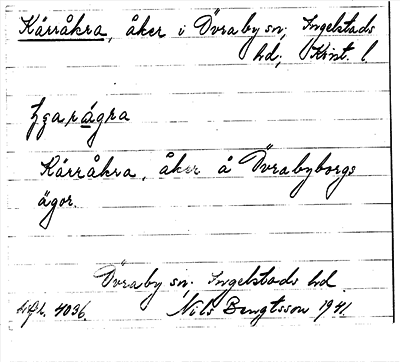 Kärråkra, åker i Övraby sn, Ingelstads
hd, Krist. l
Kärråkra, åker å Övrabyborgs
ägor.
Övraby sn. Ingelstads hd.
4036. Nils Bengtsson 1941.